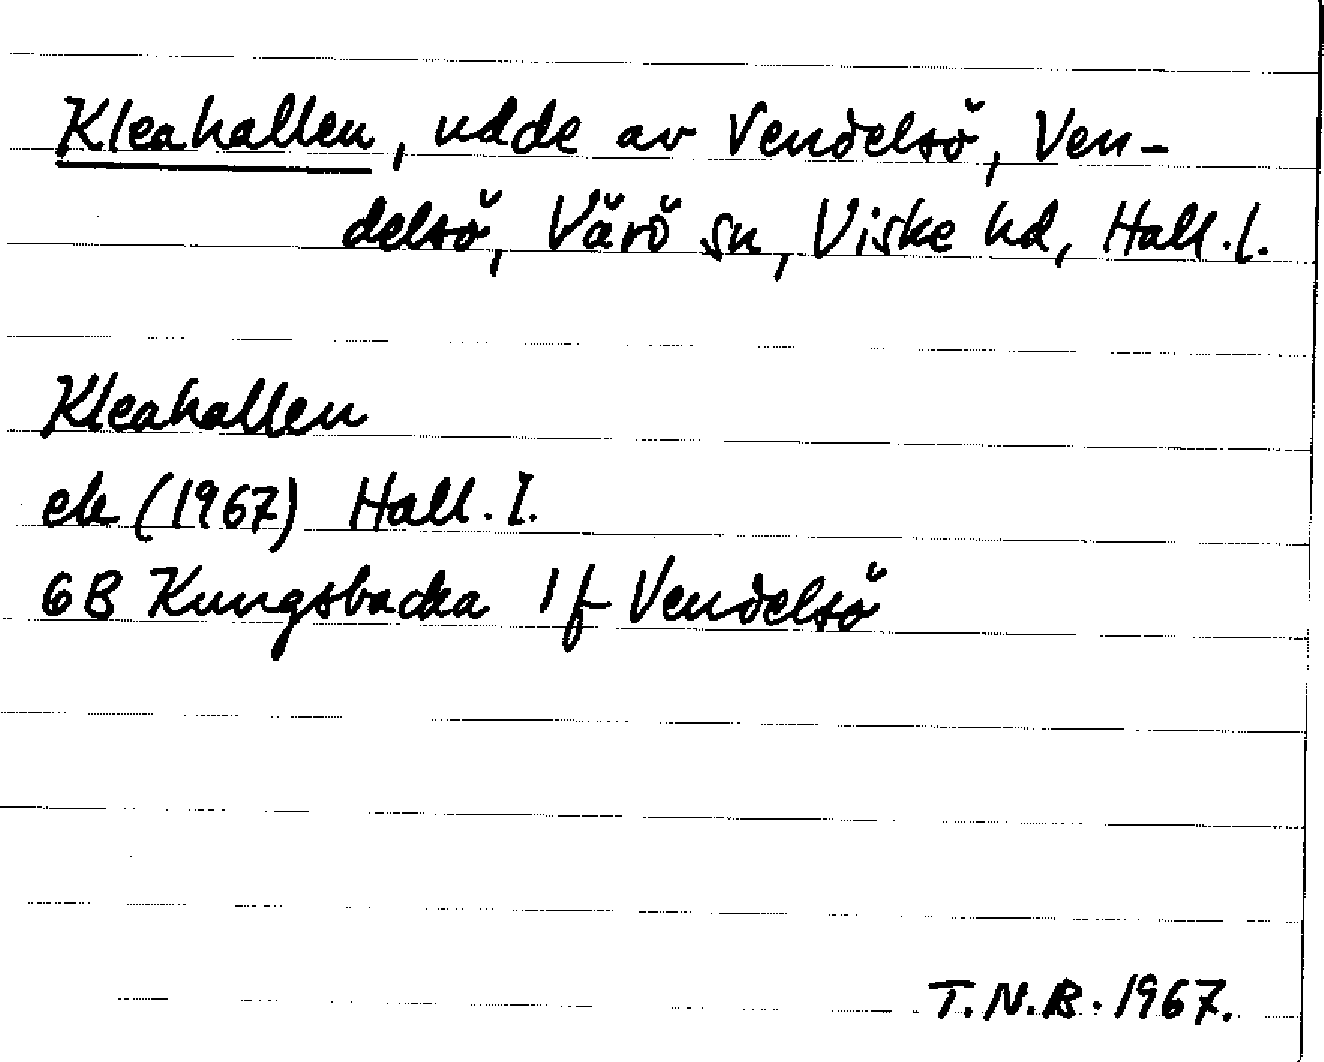 Kleahallen, udde av Vendelsö, Ven-
delsö, Värö sn, Viske hd, Hall. l.
Kleahallen
ek (1967) Hall. l.
6B Kungsbacka 1f Vendelsö
T.N.B. 1967.